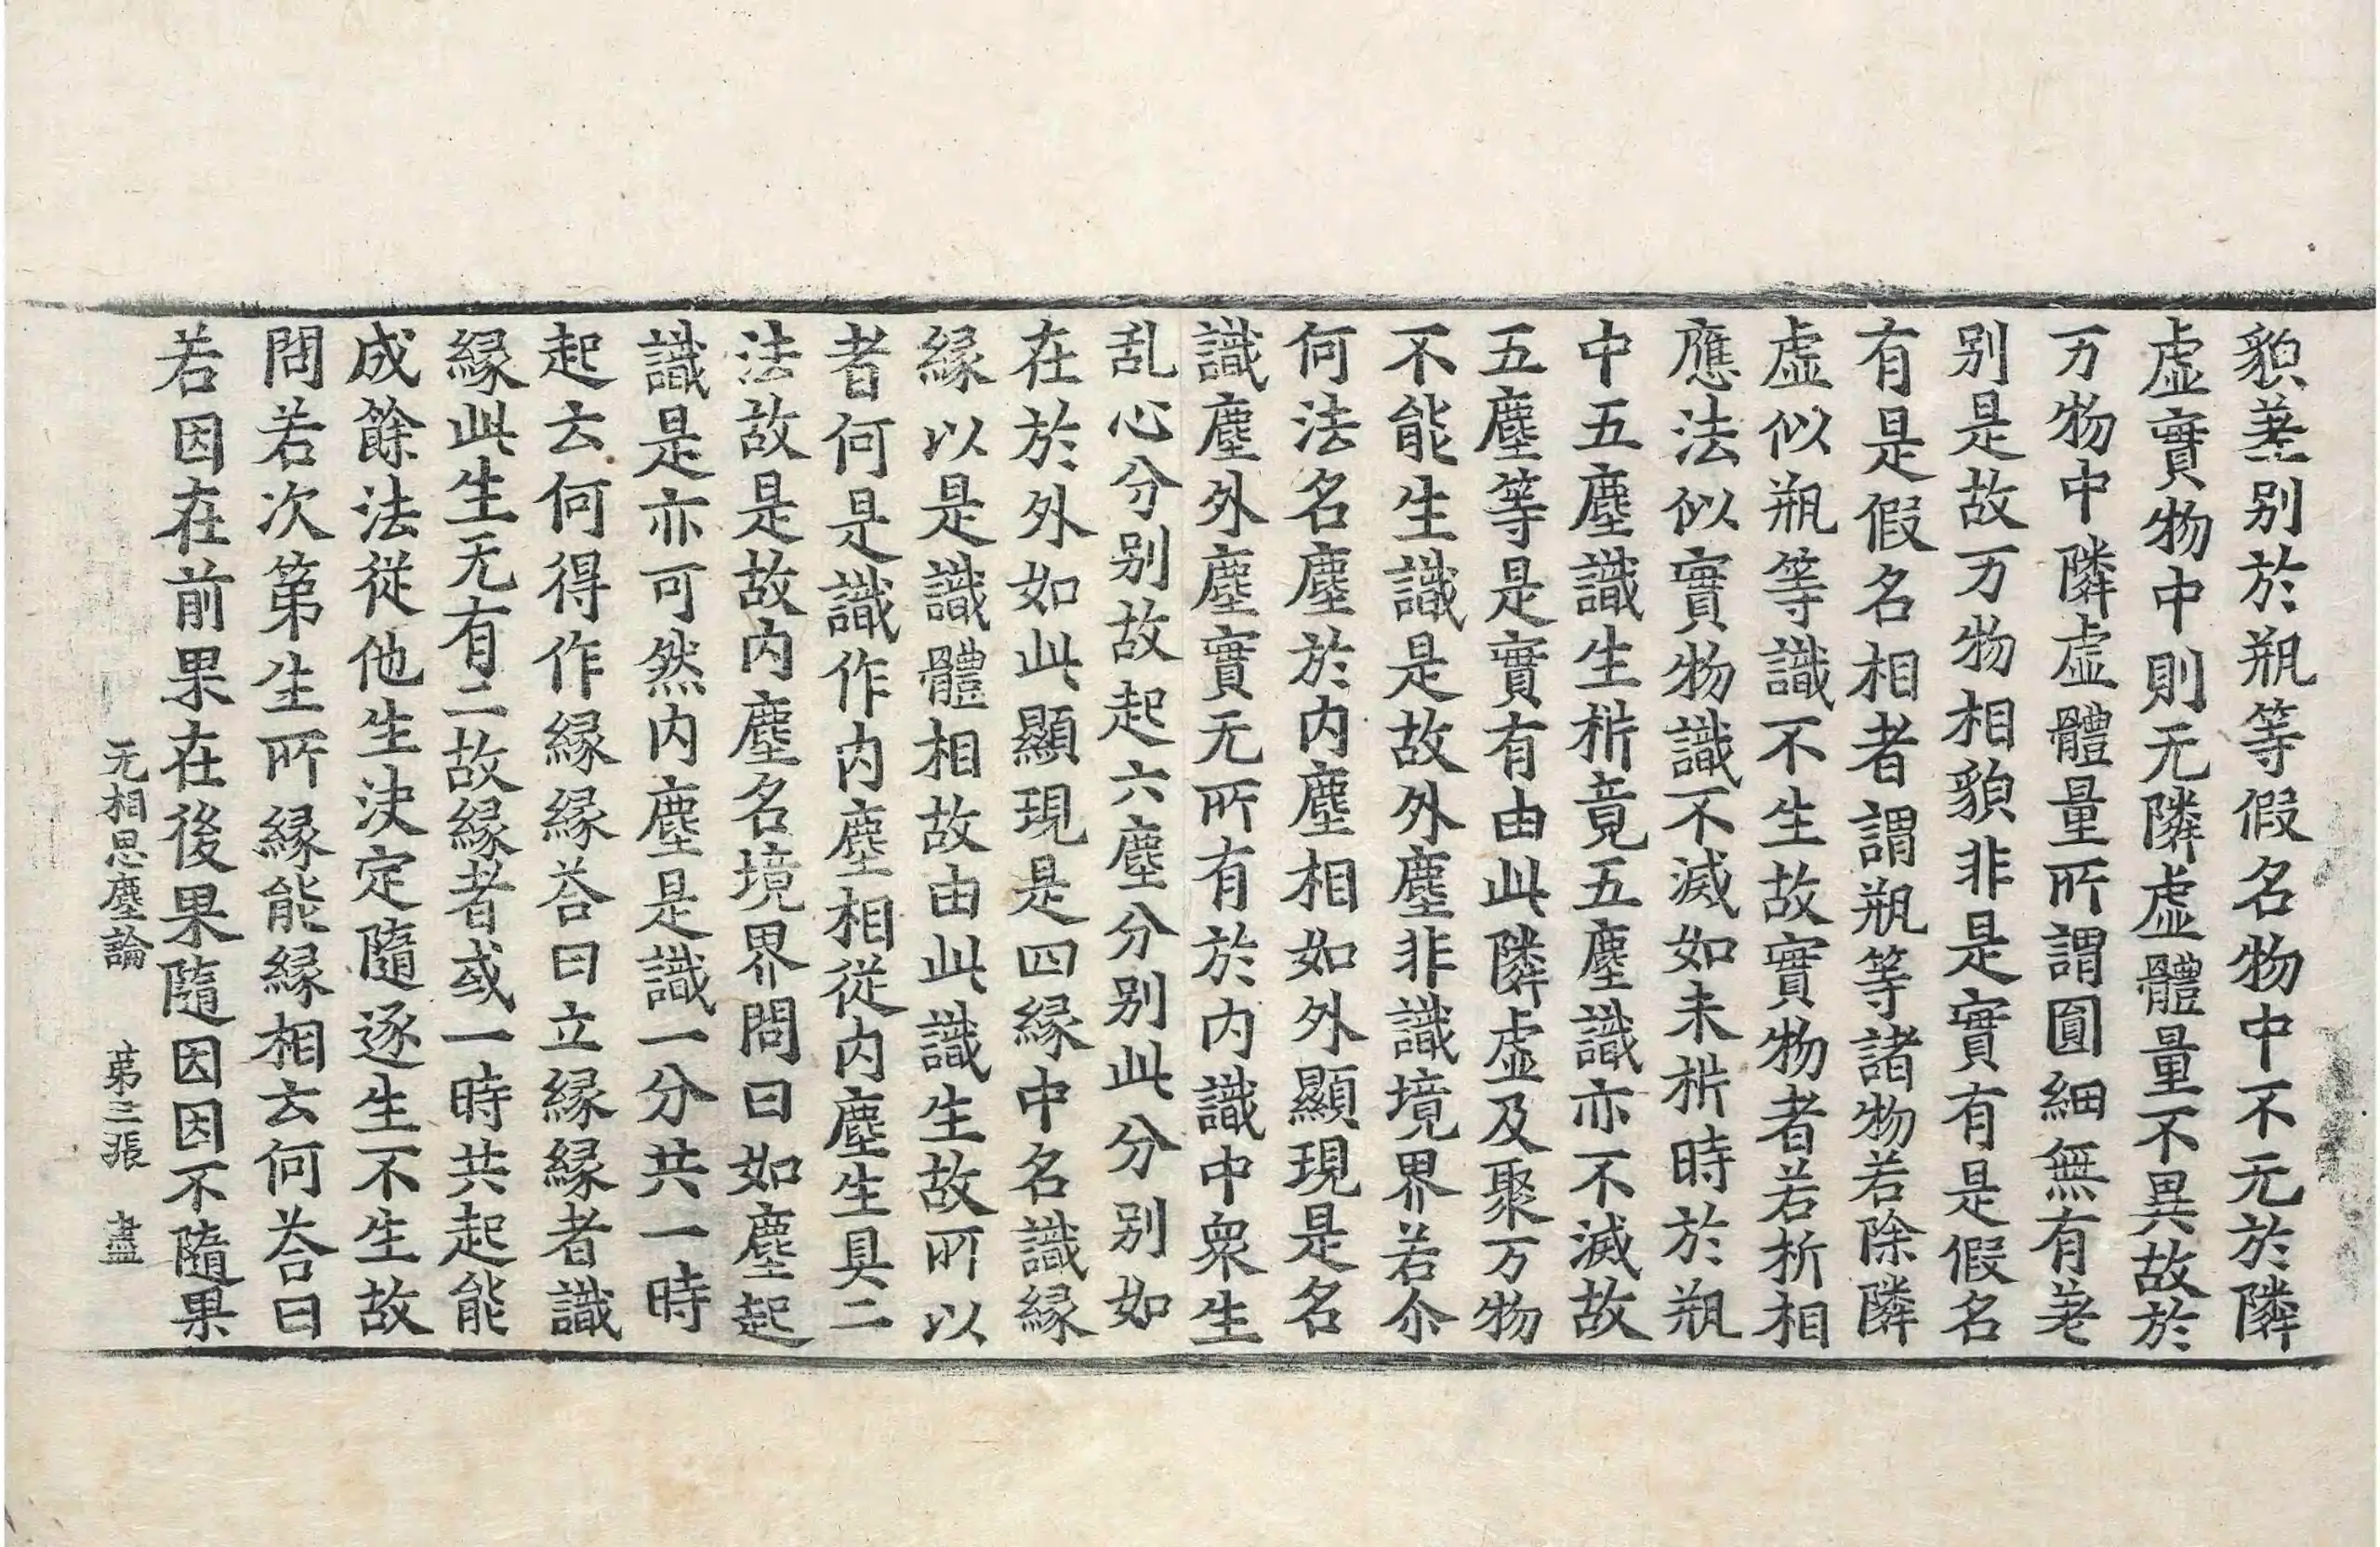 貌差別於瓶等假名物中不无於隣
虛實物中則无隣虛體量不異故於
万物中隣虛體量所謂圓細無有差
別是故万物相貌非是實有是假名
有是假名相者謂瓶等諸物若除隣
虛似瓶等識不生故實物者若析相
應法似實物識不滅如未析時於瓶
中五塵識生析竟五塵識亦不滅故
五塵等是實有由此隣虛及聚万物
不能生識是故外塵非識境界若尒
何法名塵於内塵相如外顯現是名
識塵外塵實无所有於内識中衆生
乱心分別故起六塵分別此分別如
在於外如此顯現是四緣中名識緣
緣以是識體相故由此識生故所以
者何是識作内塵相從内塵生具二
法故是故内塵名境界問曰如塵起
識是亦可然内塵是識一分共一時
起云何得作緣緣荅曰立緣緣者識
緣此生无有二故緣者或一時共起能
成餘法從他生決定隨逐生不生故
問若次第生所緣能緣相云何荅曰
若因在前果在後果隨因因不隨果
无相思塵論 第三張 盡